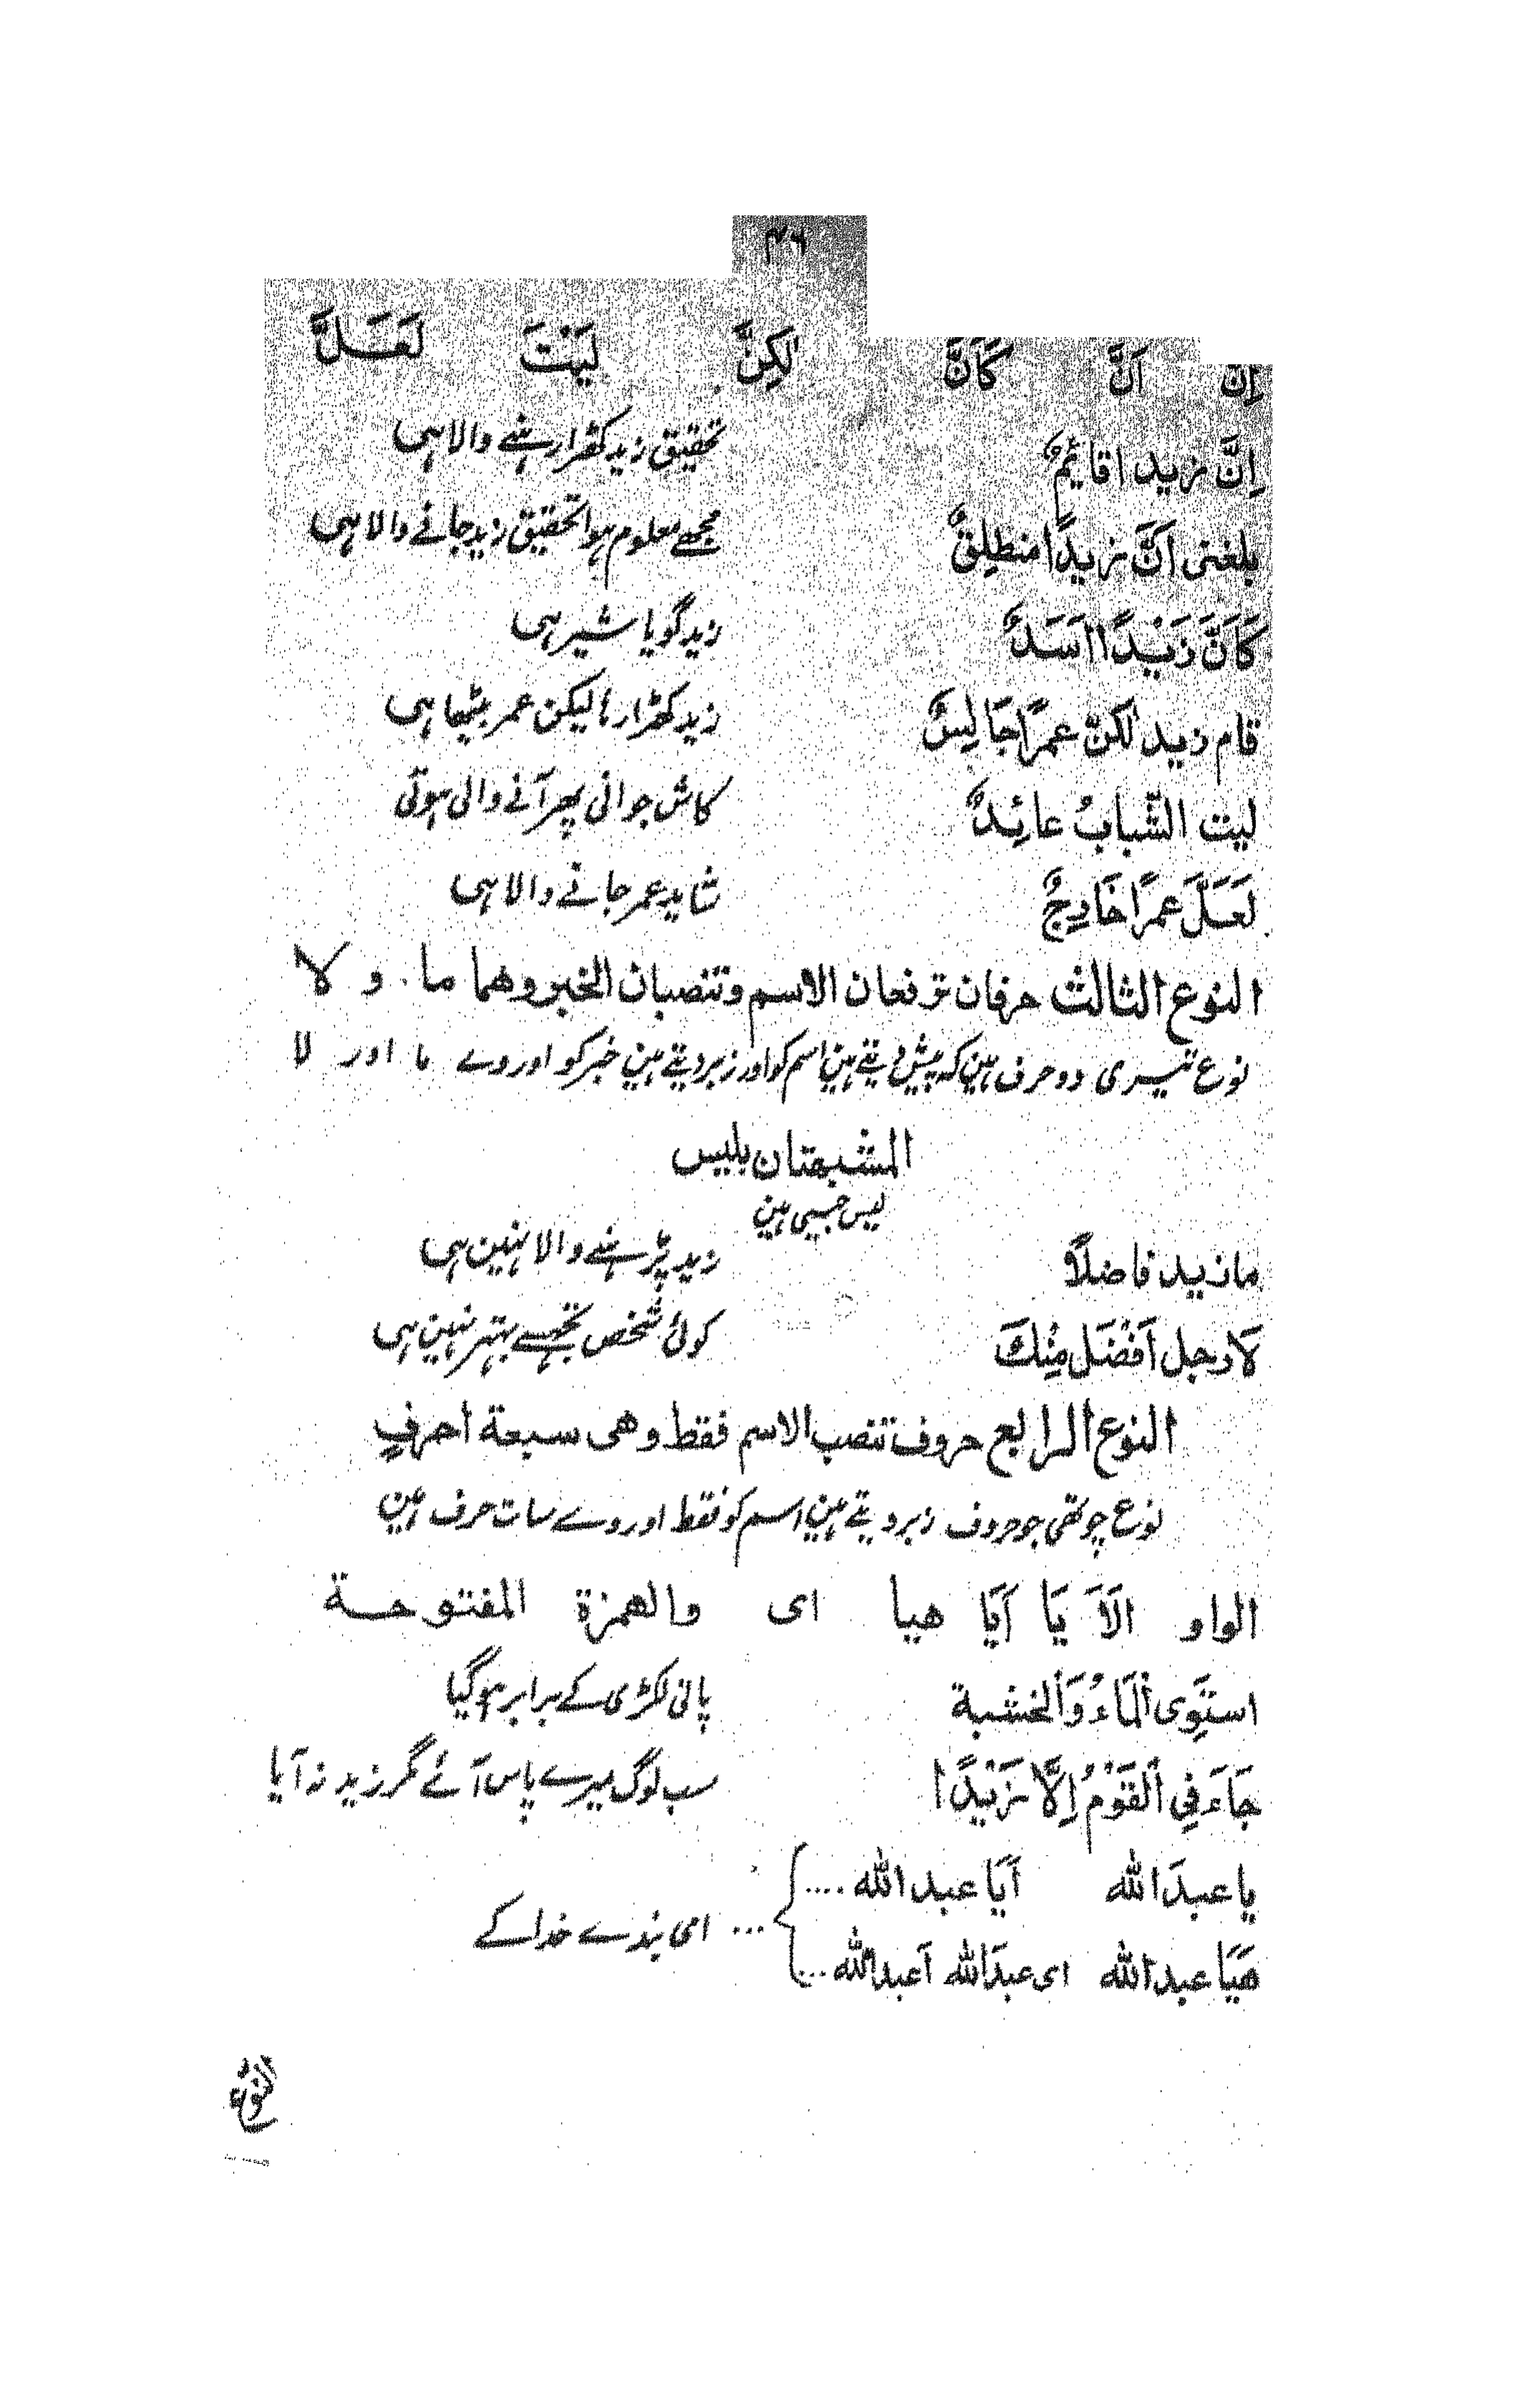 ۴۶
اِنَّ اَنَّ كَاَنَّ لٰكِنَّ لَيْتَ لَعَـلَّ
اِنَّ زيدا قائِمٌ تحقیق زید کھڑا رہنے والا ہی
بلغنی اَنَّ زيدًا منطلِقٌ مجھے معلوم ہوا تحقیق زید جانے والا ہی
كَاَنَّ زَيْدًا اَسَدٌ زید گویا شیر ہی
قام زيد لٰكنّ عمرًا جَالِسٌ زید کھڑا رہا لیکن عمر بیٹھا ہی
ليت الشّبابُ عائِدٌ کاش جوانی پھر آنے والی ہوتی
لَعَلَّ عمرًا خَارِجٌ شاید عمر جانے والا ہی
النوع الثالث حرفان ترفعان الاسم وتنصبان الخبر وهما ما و لا
نوع تیسری دو حرف ہین کہ پیش دیتے ہین اسم کو اور زبر دیتے ہین خبر کو اور وے ما اور لا
المشبهتان بليس
لیس جیسی ہین
ما زيد فاضلًا زید پڑہنے والا نہین ہی
لَا رجل اَفْضَل مِنْكَ کوئی شخص تجھسے بہتر نہین ہی
النوع الرابع حروف تنصب الاسم فقط وهی سبعة احرفٍ
نوع چوتھی جو حروف زبر دیتے ہین اسم کو فقط اور وے سات حرف ہین
الواو الَاَّ يَا اَيَا هيا ای والهمزة المفتوحـة
استَوِی اَلْمَاءُ وَاَلخشبة پانی لکڑی کے برابر ہو گیا
جَاءَنِی اَلْقَوْمُ اِلَّا زَيْدًا سب لوگ میرے پاس آئے مگر زید نہ آیا
يا عبدَ الله اَيَا عبد الله ....
هَيَا عبد الله ای عبدَ الله اَ عبد الله ... ... ای بندے خدا کے
النوع